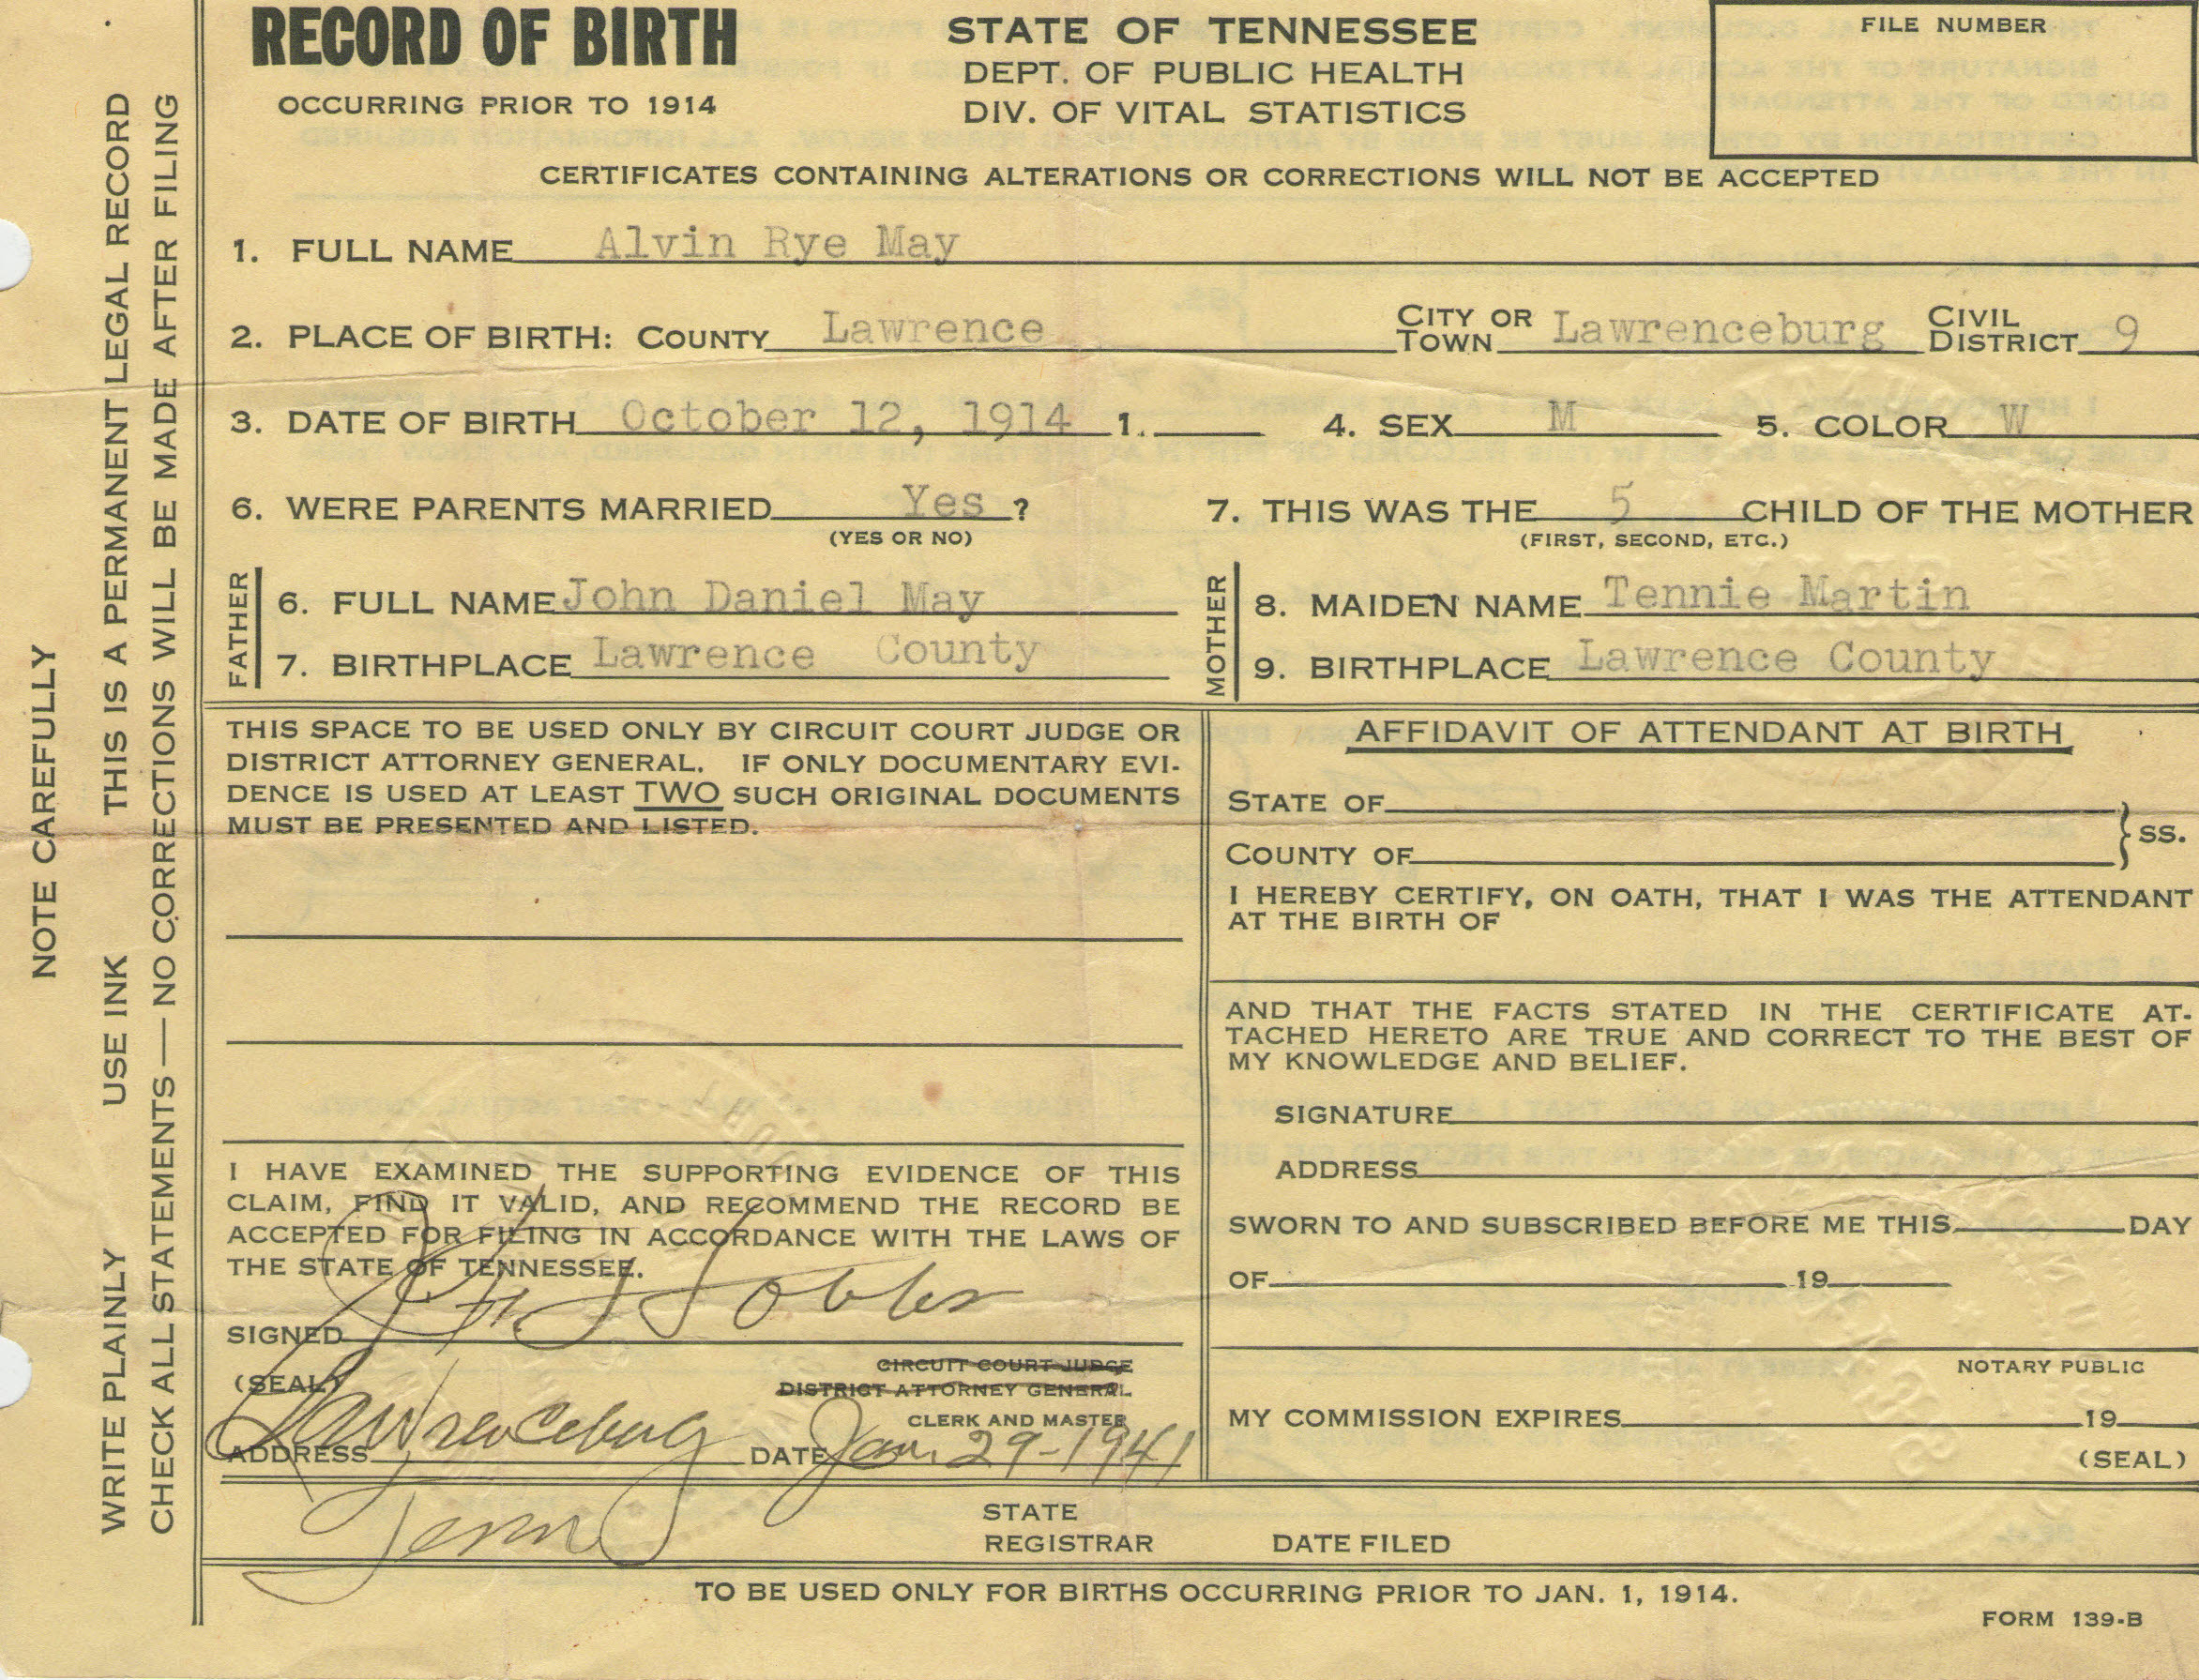 RECORD OF BIRTH
OCCURRING PRIOR TO 1914
STATE OF TENNESSEE
DEPT. OF PUBLIC HEALTH
DIV. OF VITAL STATISTICS
FILE NUMBER
CERTIFICATES CONTAINING ALTERATIONS OR CORRECTIONS WILL NOT BE ACCEPTED
NOTE CAREFULLY
WRITE PLAINLY USE INK THIS IS A PERMANENT LEGAL RECORD
CHECK ALL STATEMENTS — NO CORRECTIONS WILL BE MADE AFTER FILING
1. FULL NAME Alvin Rye May
2. PLACE OF BIRTH: COUNTY Lawrence CITY OR TOWN Lawrenceburg CIVIL DISTRICT 9
3. DATE OF BIRTH October 12, 1914 1. 4. SEX M 5. COLOR W
6. WERE PARENTS MARRIED Yes ? 7. THIS WAS THE 5 CHILD OF THE MOTHER
(YES OR NO) (FIRST, SECOND, ETC.)
FATHER
6. FULL NAME John Daniel May
7. BIRTHPLACE Lawrence County
MOTHER
8. MAIDEN NAME Tennie Martin
9. BIRTHPLACE Lawrence County
THIS SPACE TO BE USED ONLY BY CIRCUIT COURT JUDGE OR
DISTRICT ATTORNEY GENERAL. IF ONLY DOCUMENTARY EVI-
DENCE IS USED AT LEAST TWO SUCH ORIGINAL DOCUMENTS
MUST BE PRESENTED AND LISTED.
I HAVE EXAMINED THE SUPPORTING EVIDENCE OF THIS
CLAIM, FIND IT VALID, AND RECOMMEND THE RECORD BE
ACCEPTED FOR FILING IN ACCORDANCE WITH THE LAWS OF
THE STATE OF TENNESSEE.
SIGNED
(SEAL)
CIRCUIT COURT JUDGE
DISTRICT ATTORNEY GENERAL
CLERK AND MASTER
ADDRESS Lawrenceburg DATE Jan. 29-1941
Tenn
AFFIDAVIT OF ATTENDANT AT BIRTH
STATE OF
COUNTY OF
SS.
I HEREBY CERTIFY, ON OATH, THAT I WAS THE ATTENDANT
AT THE BIRTH OF
AND THAT THE FACTS STATED IN THE CERTIFICATE AT-
TACHED HERETO ARE TRUE AND CORRECT TO THE BEST OF
MY KNOWLEDGE AND BELIEF.
SIGNATURE
ADDRESS
SWORN TO AND SUBSCRIBED BEFORE ME THIS DAY
OF 19
NOTARY PUBLIC
MY COMMISSION EXPIRES 19
(SEAL)
STATE
REGISTRAR DATE FILED
TO BE USED ONLY FOR BIRTHS OCCURRING PRIOR TO JAN. 1, 1914.
FORM 139-B